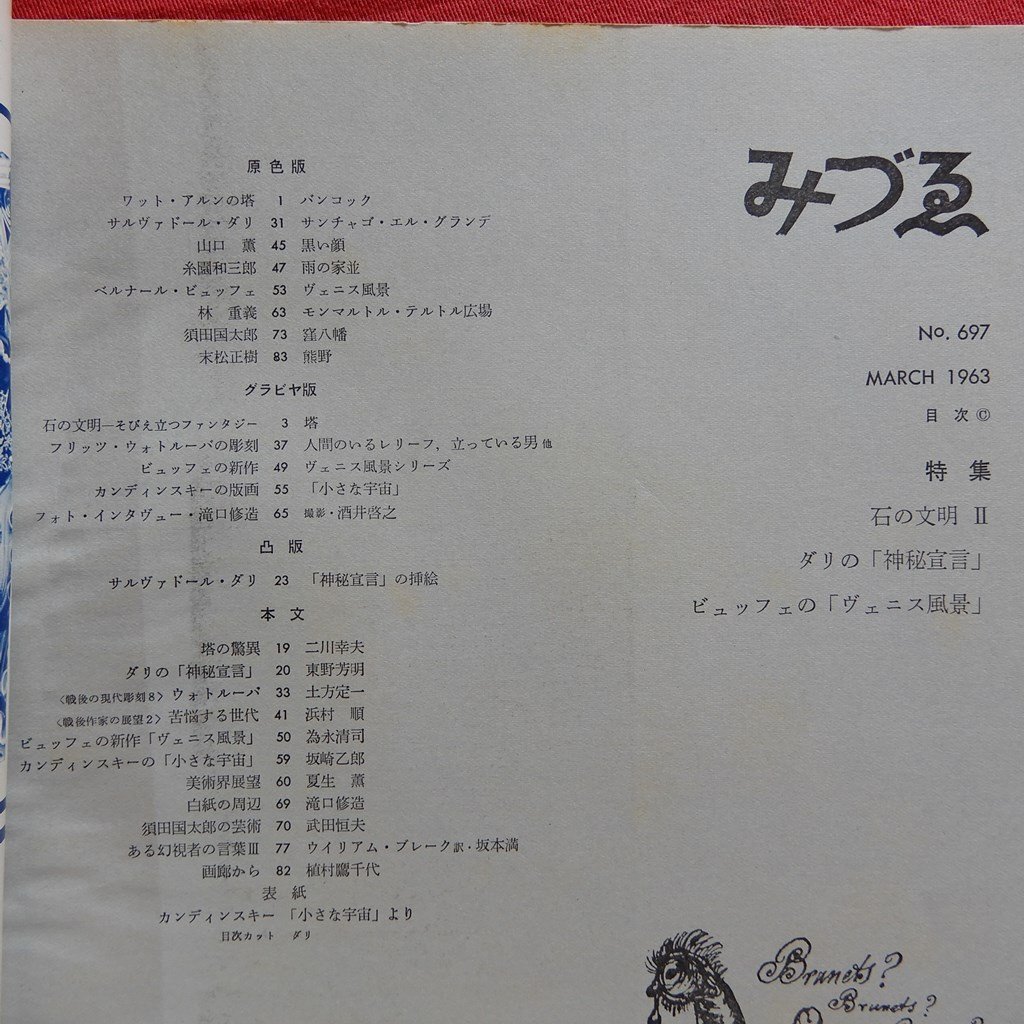 みづゑ
No. 697
MARCH 1963
目次 ©
特集
石の文明 II
ダリの「神秘宣言」
ビュッフェの「ヴェニス風景」
原色版
ワット・アルンの塔 1 バンコック
サルヴァドール・ダリ 31 サンチャゴ・エル・グランデ
山口 薫 45 黒い顔
糸園和三郎 47 雨の家並
ベルナール・ビュッフェ 53 ヴェニス風景
林 重義 63 モンマルトル・テルトル広場
須田国太郎 73 窪八幡
末松正樹 83 熊野
グラビヤ版
石の文明―そびえ立つファンタジー 3 塔
フリッツ・ウォトルーバの彫刻 37 人間のいるレリーフ，立っている男 他
ビュッフェの新作 49 ヴェニス風景シリーズ
カンディンスキーの版画 55 「小さな宇宙」
フォト・インタヴュー・滝口修造 65 撮影・酒井啓之
凸版
サルヴァドール・ダリ 23 「神秘宣言」の挿絵
本文
塔の驚異 19 二川幸夫
ダリの「神秘宣言」 20 東野芳明
〈戦後の現代彫刻8〉ウォトルーバ 33 土方定一
〈戦後作家の展望2〉苦悩する世代 41 浜村 順
ビュッフェの新作「ヴェニス風景」 50 為永清司
カンディンスキーの「小さな宇宙」 59 坂崎乙郎
美術界展望 60 夏生 薫
白紙の周辺 69 滝口修造
須田国太郎の芸術 70 武田恒夫
ある幻視者の言葉III 77 ウイリアム・ブレーク 訳・坂本満
画廊から 82 植村鷹千代
表紙
カンディンスキー 「小さな宇宙」より
目次カット ダリ
Brunets?
Brunets?